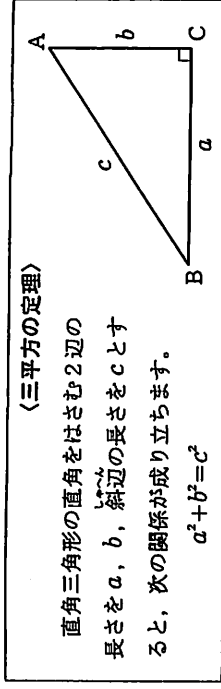 〈三平方の定理〉
直角三角形の直角をはさむ2辺の
長さをa, b, 斜辺の長さをcとす
しゃへん
ると, 次の関係が成り立ちます。
a²+b²=c²
A
b
c
C
B
a